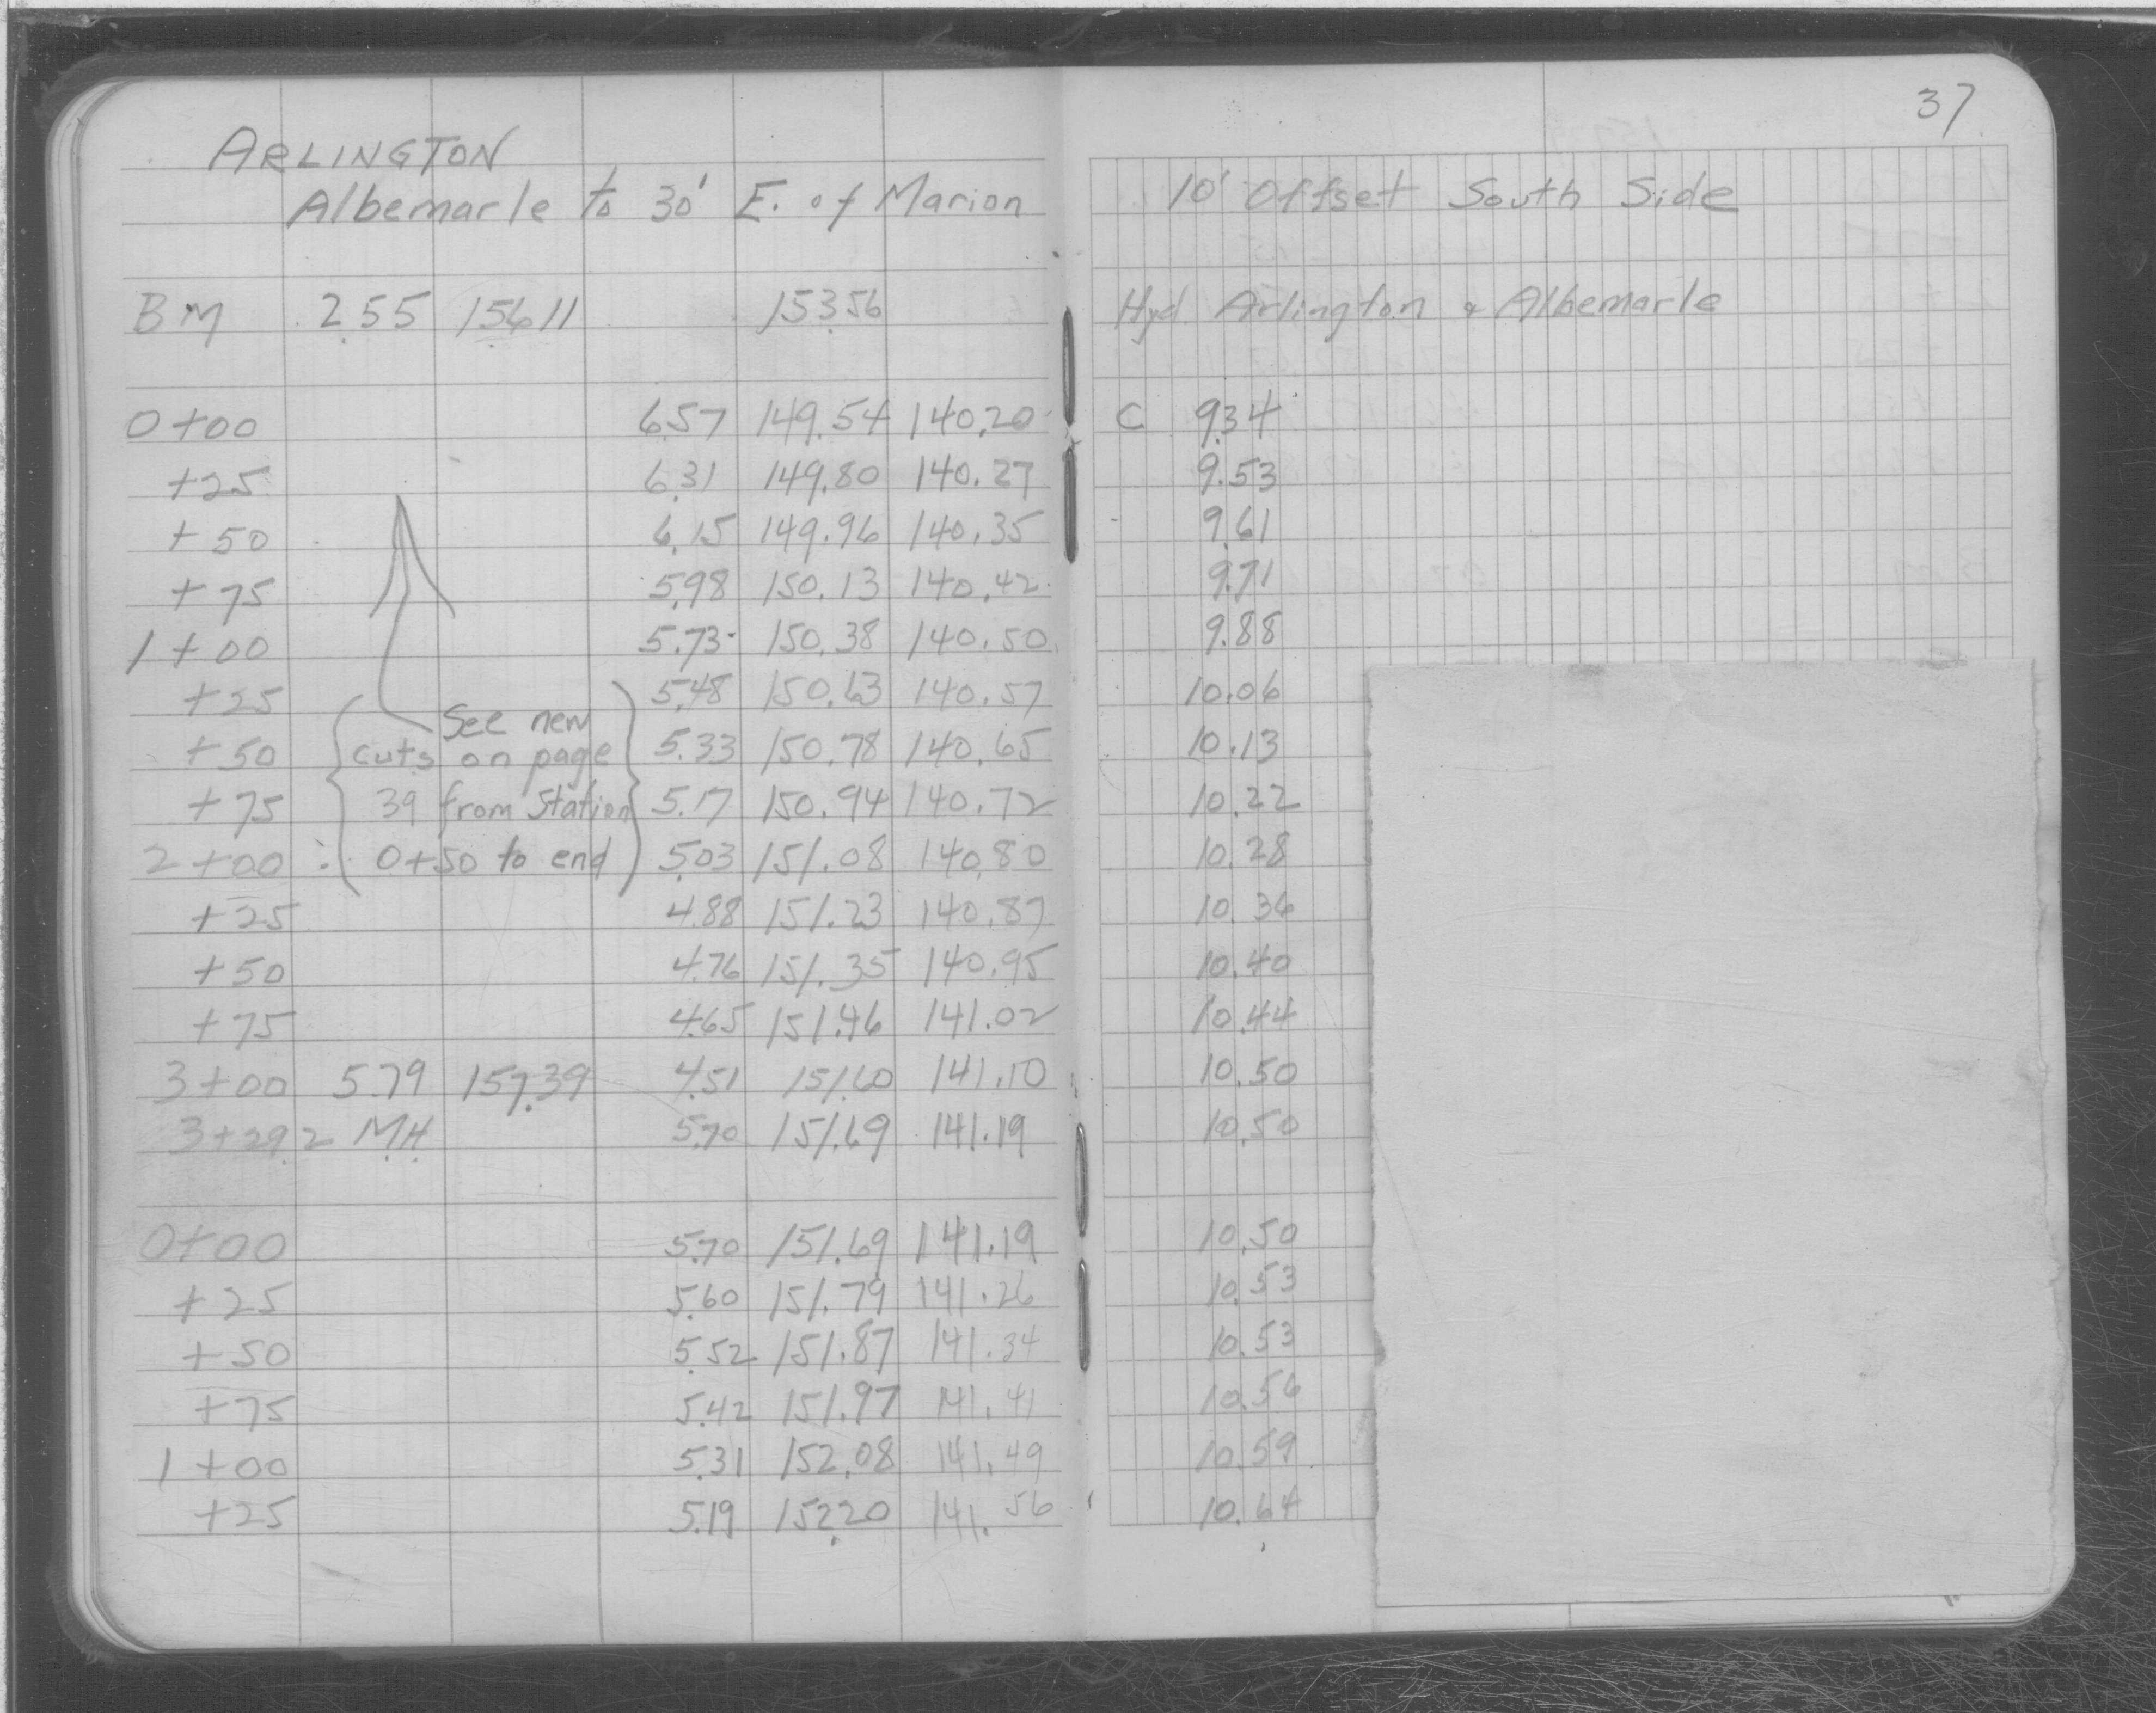 37
ARLINGTON
Albemarle to 30' E. of Marion 10' Offset South Side
BM 2.55 156.11 153.56 Hyd Arlington & Albemarle
0+00 6.57 149.54 140.20 C 9.34
+25 6.31 149.80 140.27 9.53
+50 6.15 149.96 140.35 9.61
+75 5.98 150.13 140.42 9.71
1+00 5.73 150.38 140.50 9.88
+25 5.48 150.63 140.57 10.06
See new
+50 cuts on page 5.33 150.78 140.65 10.13
+75 39 from Station 5.17 150.94 140.72 10.22
2+00 0+50 to end 5.03 151.08 140.80 10.28
+25 4.88 151.23 140.87 10.36
+50 4.76 151.35 140.95 10.40
+75 4.65 151.46 141.02 10.44
3+00 5.79 157.39 4.51 151.60 141.10 10.50
3+29.2 M.H. 5.70 151.69 141.19 10.50
0+00 5.70 151.69 141.19 10.50
+25 5.60 151.79 141.26 10.53
+50 5.52 151.87 141.34 10.53
+75 5.42 151.97 141.41 10.56
1+00 5.31 152.08 141.49 10.59
+25 5.19 152.20 141.56 10.64